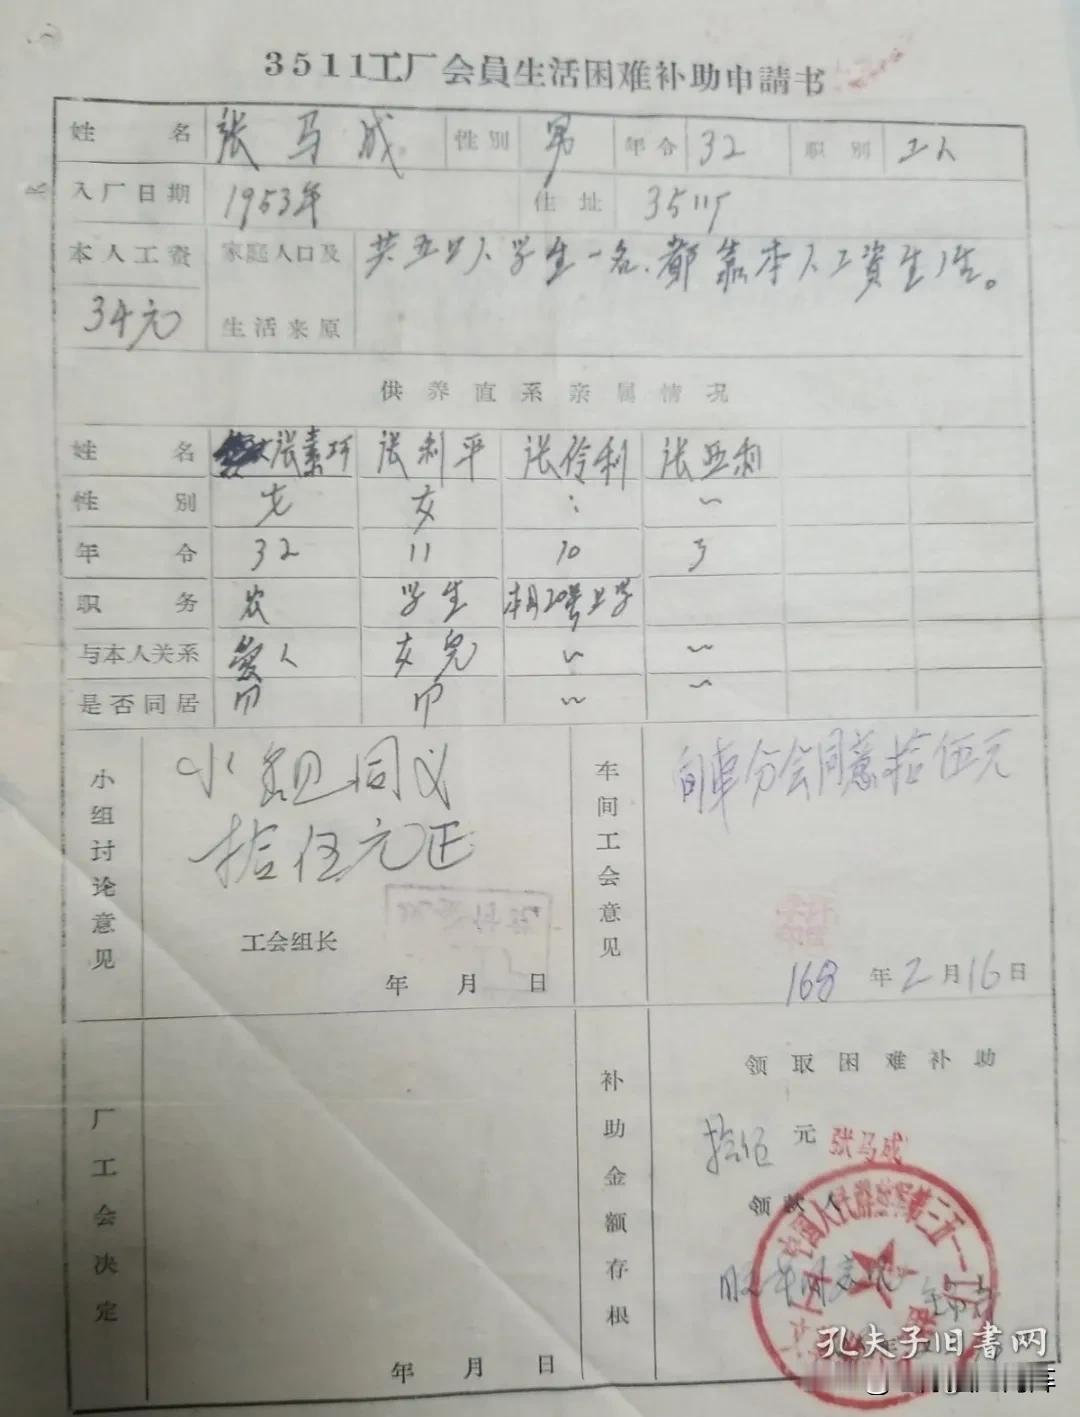 3511工厂会員生活困难补助申請书
姓名 张马成 性别 男 年令 32 职别 工人
入厂日期 1953年 住址 3511厂
本人工资 家庭人口及 共五口人学生一名、都靠本人工資生活。
34元 生活来原
供养直系亲属情况
姓名 张素巧 张利平 张伶利 张亚利
性别 女 女 : ~
年令 32 11 10 3
职务 农 学生 本月20号上学
与本人关系 爱人 女児 ~ ~
是否同居 ~ ~
小组讨论意见 小組同义
拾伍元正
工会组长
年 月 日
车间工会意见 分会同意拾伍元
168年2月16日
厂工会决定
年 月 日
补助金额存根 领取困难补助
拾伍元 张马成
领款人
中国人民解放军第三五一一工厂
孔夫子旧书网